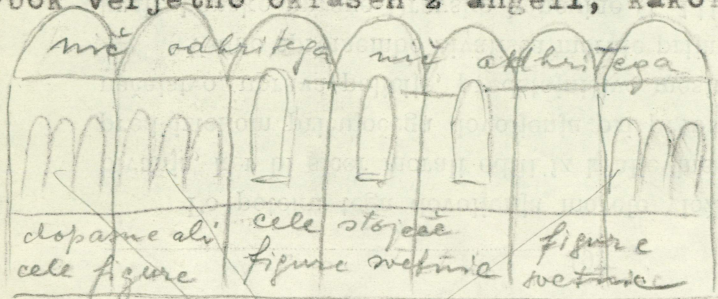 bok verjetno okrašen z angeli, kakor
nič odkritega nič odkritega
dopasne ali cele figure
cele stoječe figure svetnic
figure svetnice